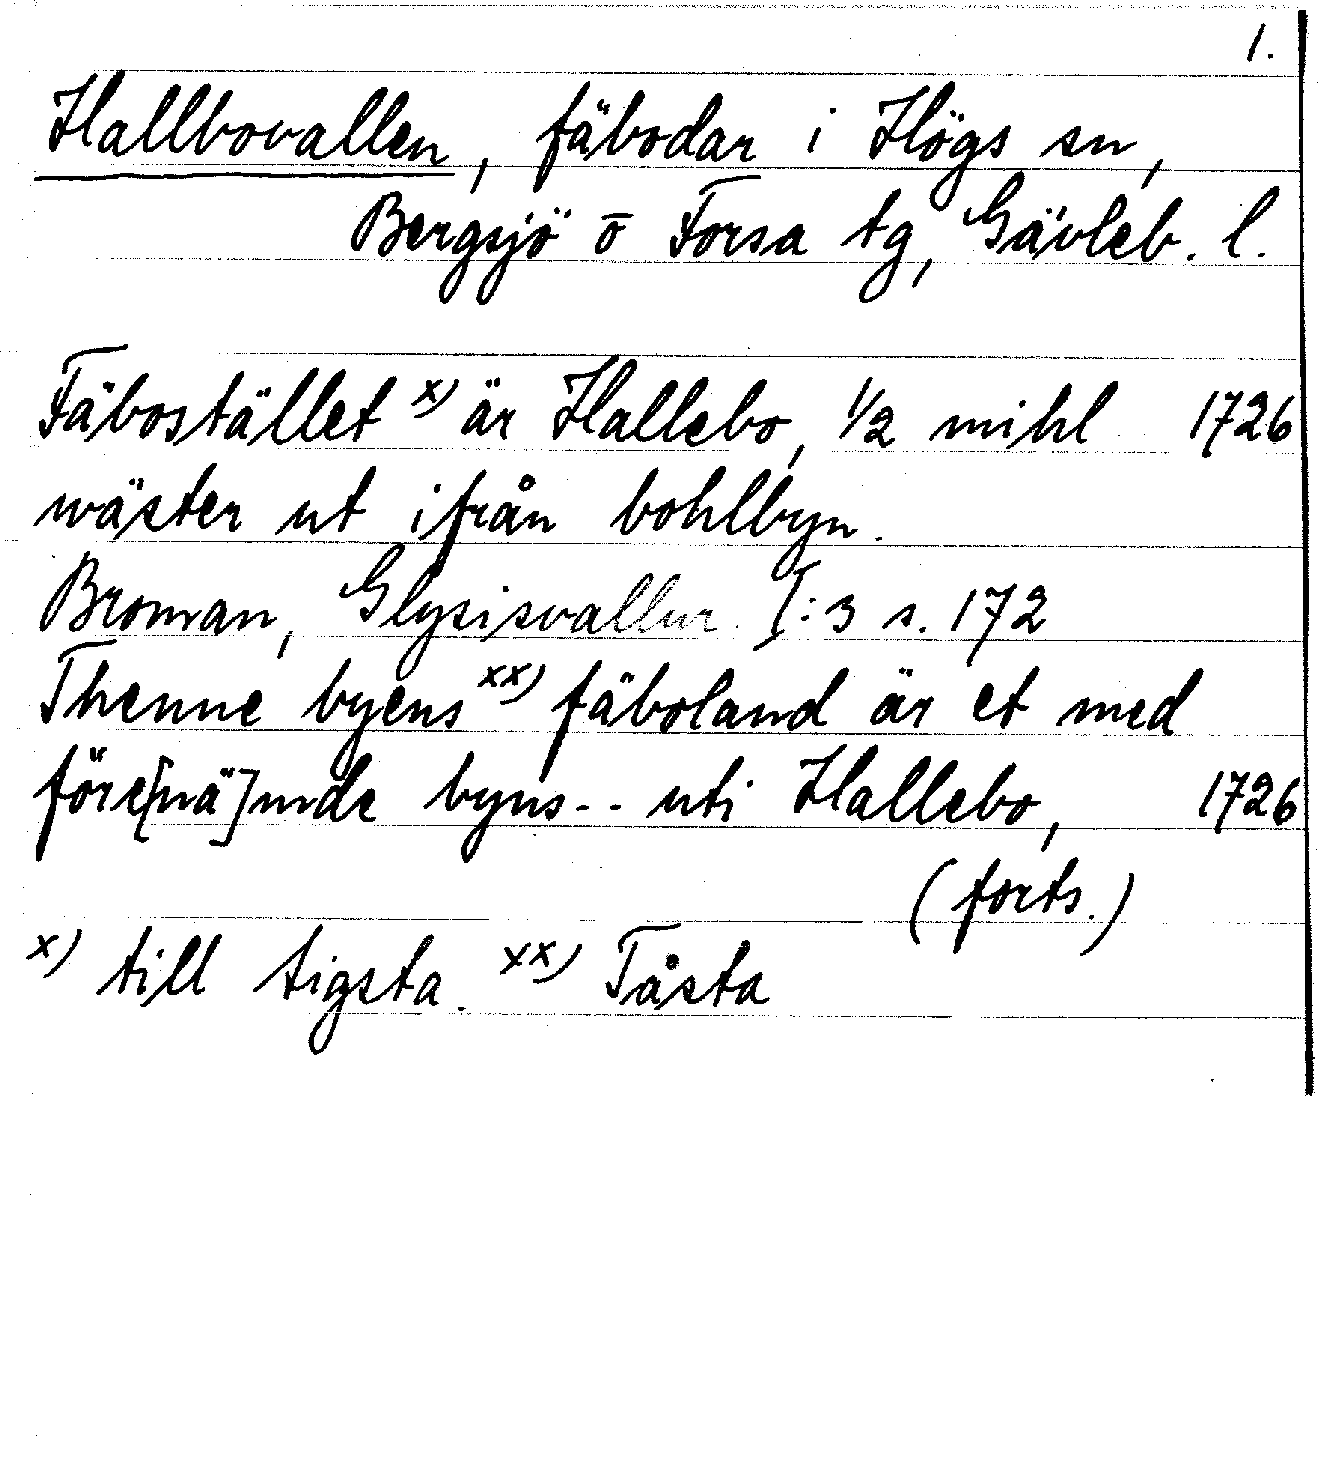 1.
Hallbovallen, fäbodar i Högs sn,
Bergsjö o Forsa tg, Gävleb. l.
Fäbostället x) är Hallebo, 1/2 mihl 1726
wäster ut ifrån bohlbyn.
Broman, Glysisvallur. I:3 s. 172
Thenne byens xx) fäboland är et med
före[nä]mde byns-- uti Hallebo, 1726
(forts.)
x) till tigsta. xx) Tåsta